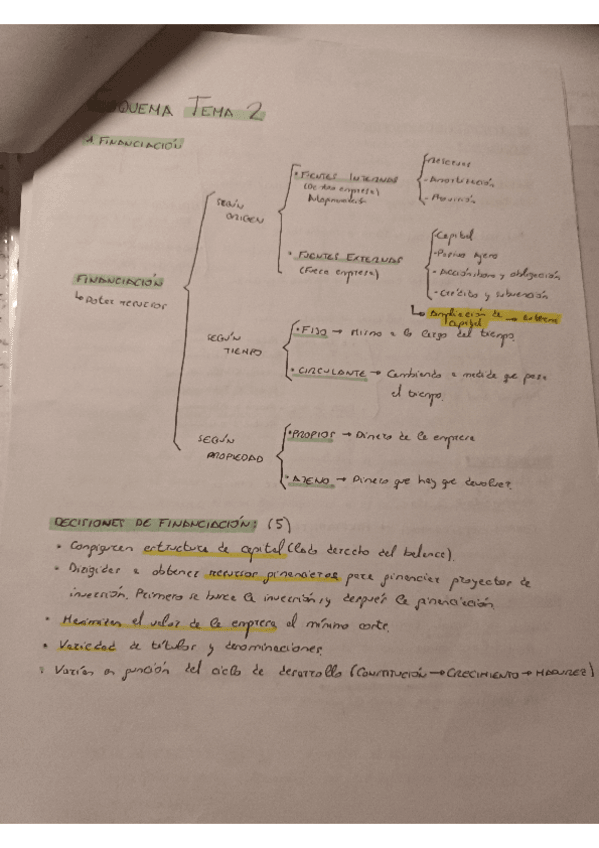 ESQUEMA TEMA 2
1. FINANCIACIÓN
FINANCIACIÓN
SEGÚN ORIGEN
• FUENTES INTERNAS
(Dentro empresa)
- Reservas
- Amortización
- Provisión
• FUENTES EXTERNAS
(Fuera empresa)
- Capital
- Pasivo ajeno
- Accionistas y obligación
- Crédito y subvención
↳ Ampliación de capital → externa
SEGÚN TIEMPO
• FIJO → Mismo a lo largo del tiempo.
• CIRCULANTE → Cambiando a medida que pasa
el tiempo.
SEGÚN PROPIEDAD
• PROPIOS → Dinero de la empresa
• AJENO → Dinero que hay que devolver.
DECISIONES DE FINANCIACIÓN: (5)
• Configuran estructura de capital (lado derecho del balance).
• Dirigidas a obtener recursos financieros para financiar proyectos de
inversión. Primero se busca la inversión, y después la financiación.
• Maximizan el valor de la empresa al mínimo coste.
• Variedad de títulos y denominaciones
• Varían en función del ciclo de desarrollo (CONSTITUCIÓN → CRECIMIENTO → MADUREZ)